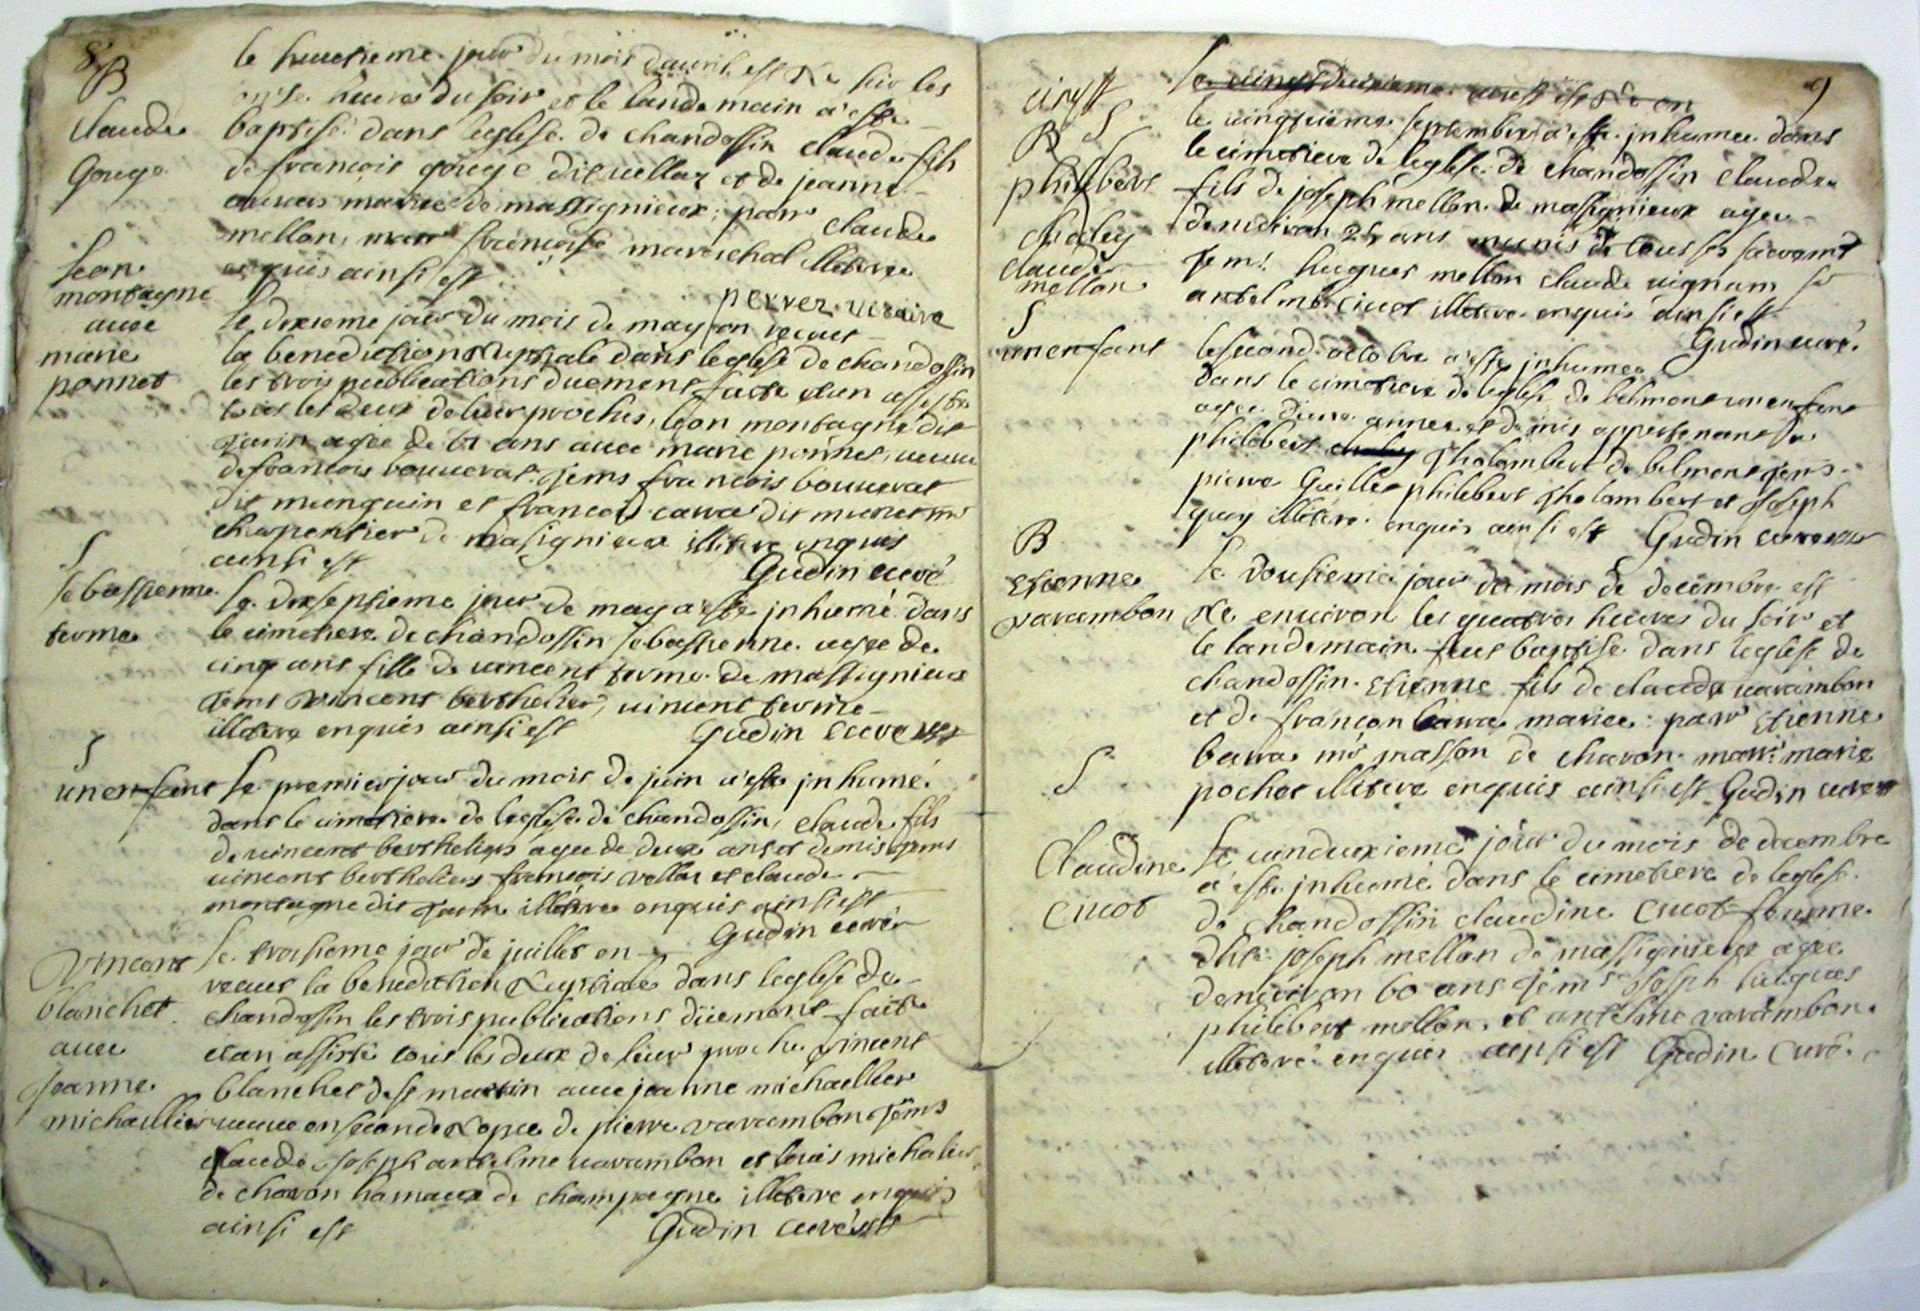 8
B
Claude
Gouge
le huictieme jour du mois davril est Ne sur les
onse heures du soir et le landemain a este
baptisé dans leglise de chandossin claude fils
de francois gouge dit vellaz et de jeanne
mariee de massignieux; parr claude
mellon, marr francoise mareschal illitere
enquis ainsi est
perret vicaire
Leon
montagne
avec
marie
ponnet
le dixieme jour du mois de may on recut
la benediction Nuptiale dans leglise de chandossin
les trois publications duement faite etan assiste
tous les deux de leur proches, leon montagne dit
jarin agée de 61 ans avec marie ponnet, veuve
de francois bouverat. tems francois bouverat
dit munguin et francois carra dit
charpentier de masignieux illitere enquis
ainsi est
Gudin curé
S
sebastienne
terme
Le dixseptieme jour de may a este inhumé dans
le cimetiere de chandossin sebastienne agee de
cinq ans fille de vincent terme de massignieux
tems vincent berthelier, vincent terme
illitere enquis ainsi est
Gudin curé
S
un enfant
Le premier jour du mois de juin a este inhumé
dans le cimetiere de leglise de chandossin, claude fils
de vincent berthelier agee de deux ans et demis tems
vincent berthelier francois vellaz et claude
montagne dit jarin illitere enquis ainsi est
Gudin curé
Vincent
blanchet
avec
Jeanne
michaillier
Le troisieme jour de juillet on
recut la benediction Nuptiale dans leglise de
chandossin les trois publications düement faite
etan assisté tous les deux de leur proche vincent
blanchet de st martin avec jeanne michaillier
veuve en seconde Nopce de pierre varambon tems
claude joseph antelme varambon et louis michalier
de charon hamaux de champagne illitere enquis
ainsi est
Gudin curé
9
S
B
philibert
chaley
claude
mellon
le cinquieme septembre a este inhumee dans
le cimetiere de leglise de chandossin claude
fils de joseph mellon de masignieux agee
denviron 25 ans munis de tous ses sacremt
tem: hugues mellon claude vignam
antelme cucot illitere enquis ainsi est
Gudin curé
S
un enfant
le second octobre a este inhumee
dans le cimetiere de leglise de belmont un enfant
agee dune annee et demis appartenant a
philibert chaley tholombert de belmont tems
pierre Guillet philibert tholambert et Joseph
guy illitere enquis ainsi est Gudin curé
B
Etienne
varambon
Le dousieme jour du mois de decembre est
Ne environ les quatres heures du soir et
le landemain fut baptise dans leglise de
chandossin Etienne fils de claude varambon
et de francon barra mariee: parr Etienne
barra mr masson de charon marr: marie
pochet illitere enquis ainsi est Gudin curé
S
Claudine
Cucot
Le vinduxieme jour du mois de decembre
a este inhumé dans le cimetiere de leglise
de chandossin claudine Cucot femme
joseph mellon de massignieux agee
denviron 60 ans tems Joseph hugues
philibert mellon et antelme varambon
illitere enquis ainsi est Gudin Curé